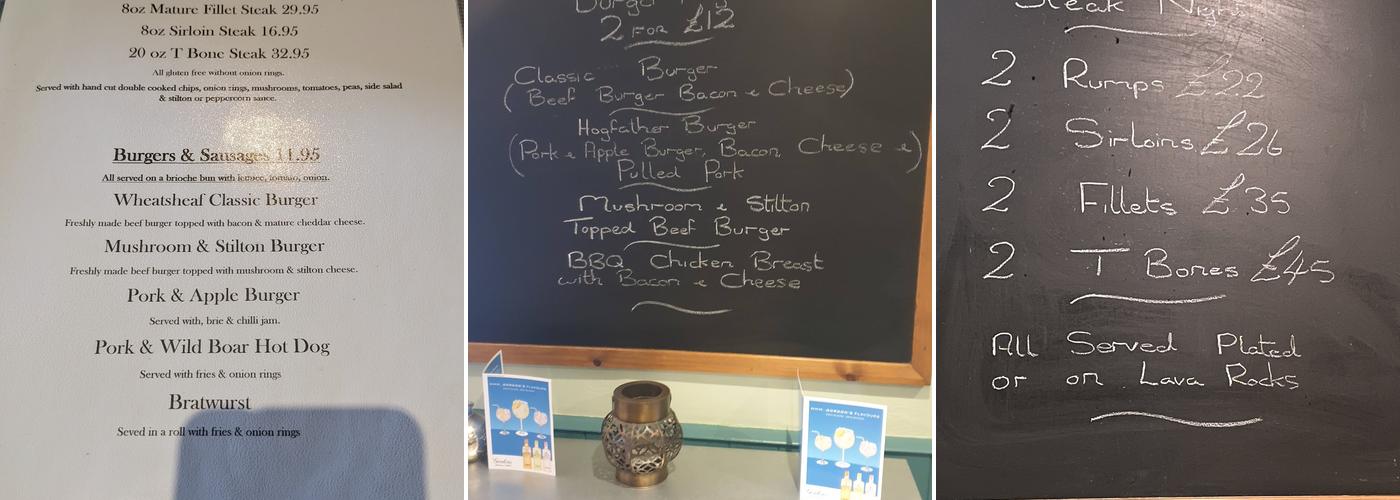 8oz Mature Fillet Steak 29.95
8oz Sirloin Steak 16.95
20 oz T Bone Steak 32.95
All gluten free without onion rings.
Served with hand cut double cooked chips, onion rings, mushrooms, tomatoes, peas, side salad
& stilton or peppercorn sauce.
Burgers & Sausages 11.95
All served on a brioche bun with lettuce, tomato, onion.
Wheatsheaf Classic Burger
Freshly made beef burger topped with bacon & mature cheddar cheese.
Mushroom & Stilton Burger
Freshly made beef burger topped with mushroom & stilton cheese.
Pork & Apple Burger
Served with, brie & chilli jam.
Pork & Wild Boar Hot Dog
Served with fries & onion rings
Bratwurst
Seved in a roll with fries & onion rings
Burger
2 FOR £12
Classic Burger
(Beef Burger Bacon & Cheese)
Hogfather Burger
(Pork & Apple Burger, Bacon, Cheese &)
Pulled Pork
Mushroom & Stilton
Topped Beef Burger
BBQ Chicken Breast
with Bacon & Cheese
Steak Night
2 Rumps £22
2 Sirloins £26
2 Fillets £35
2 T Bones £45
All Served Plated
or on Lava Rocks